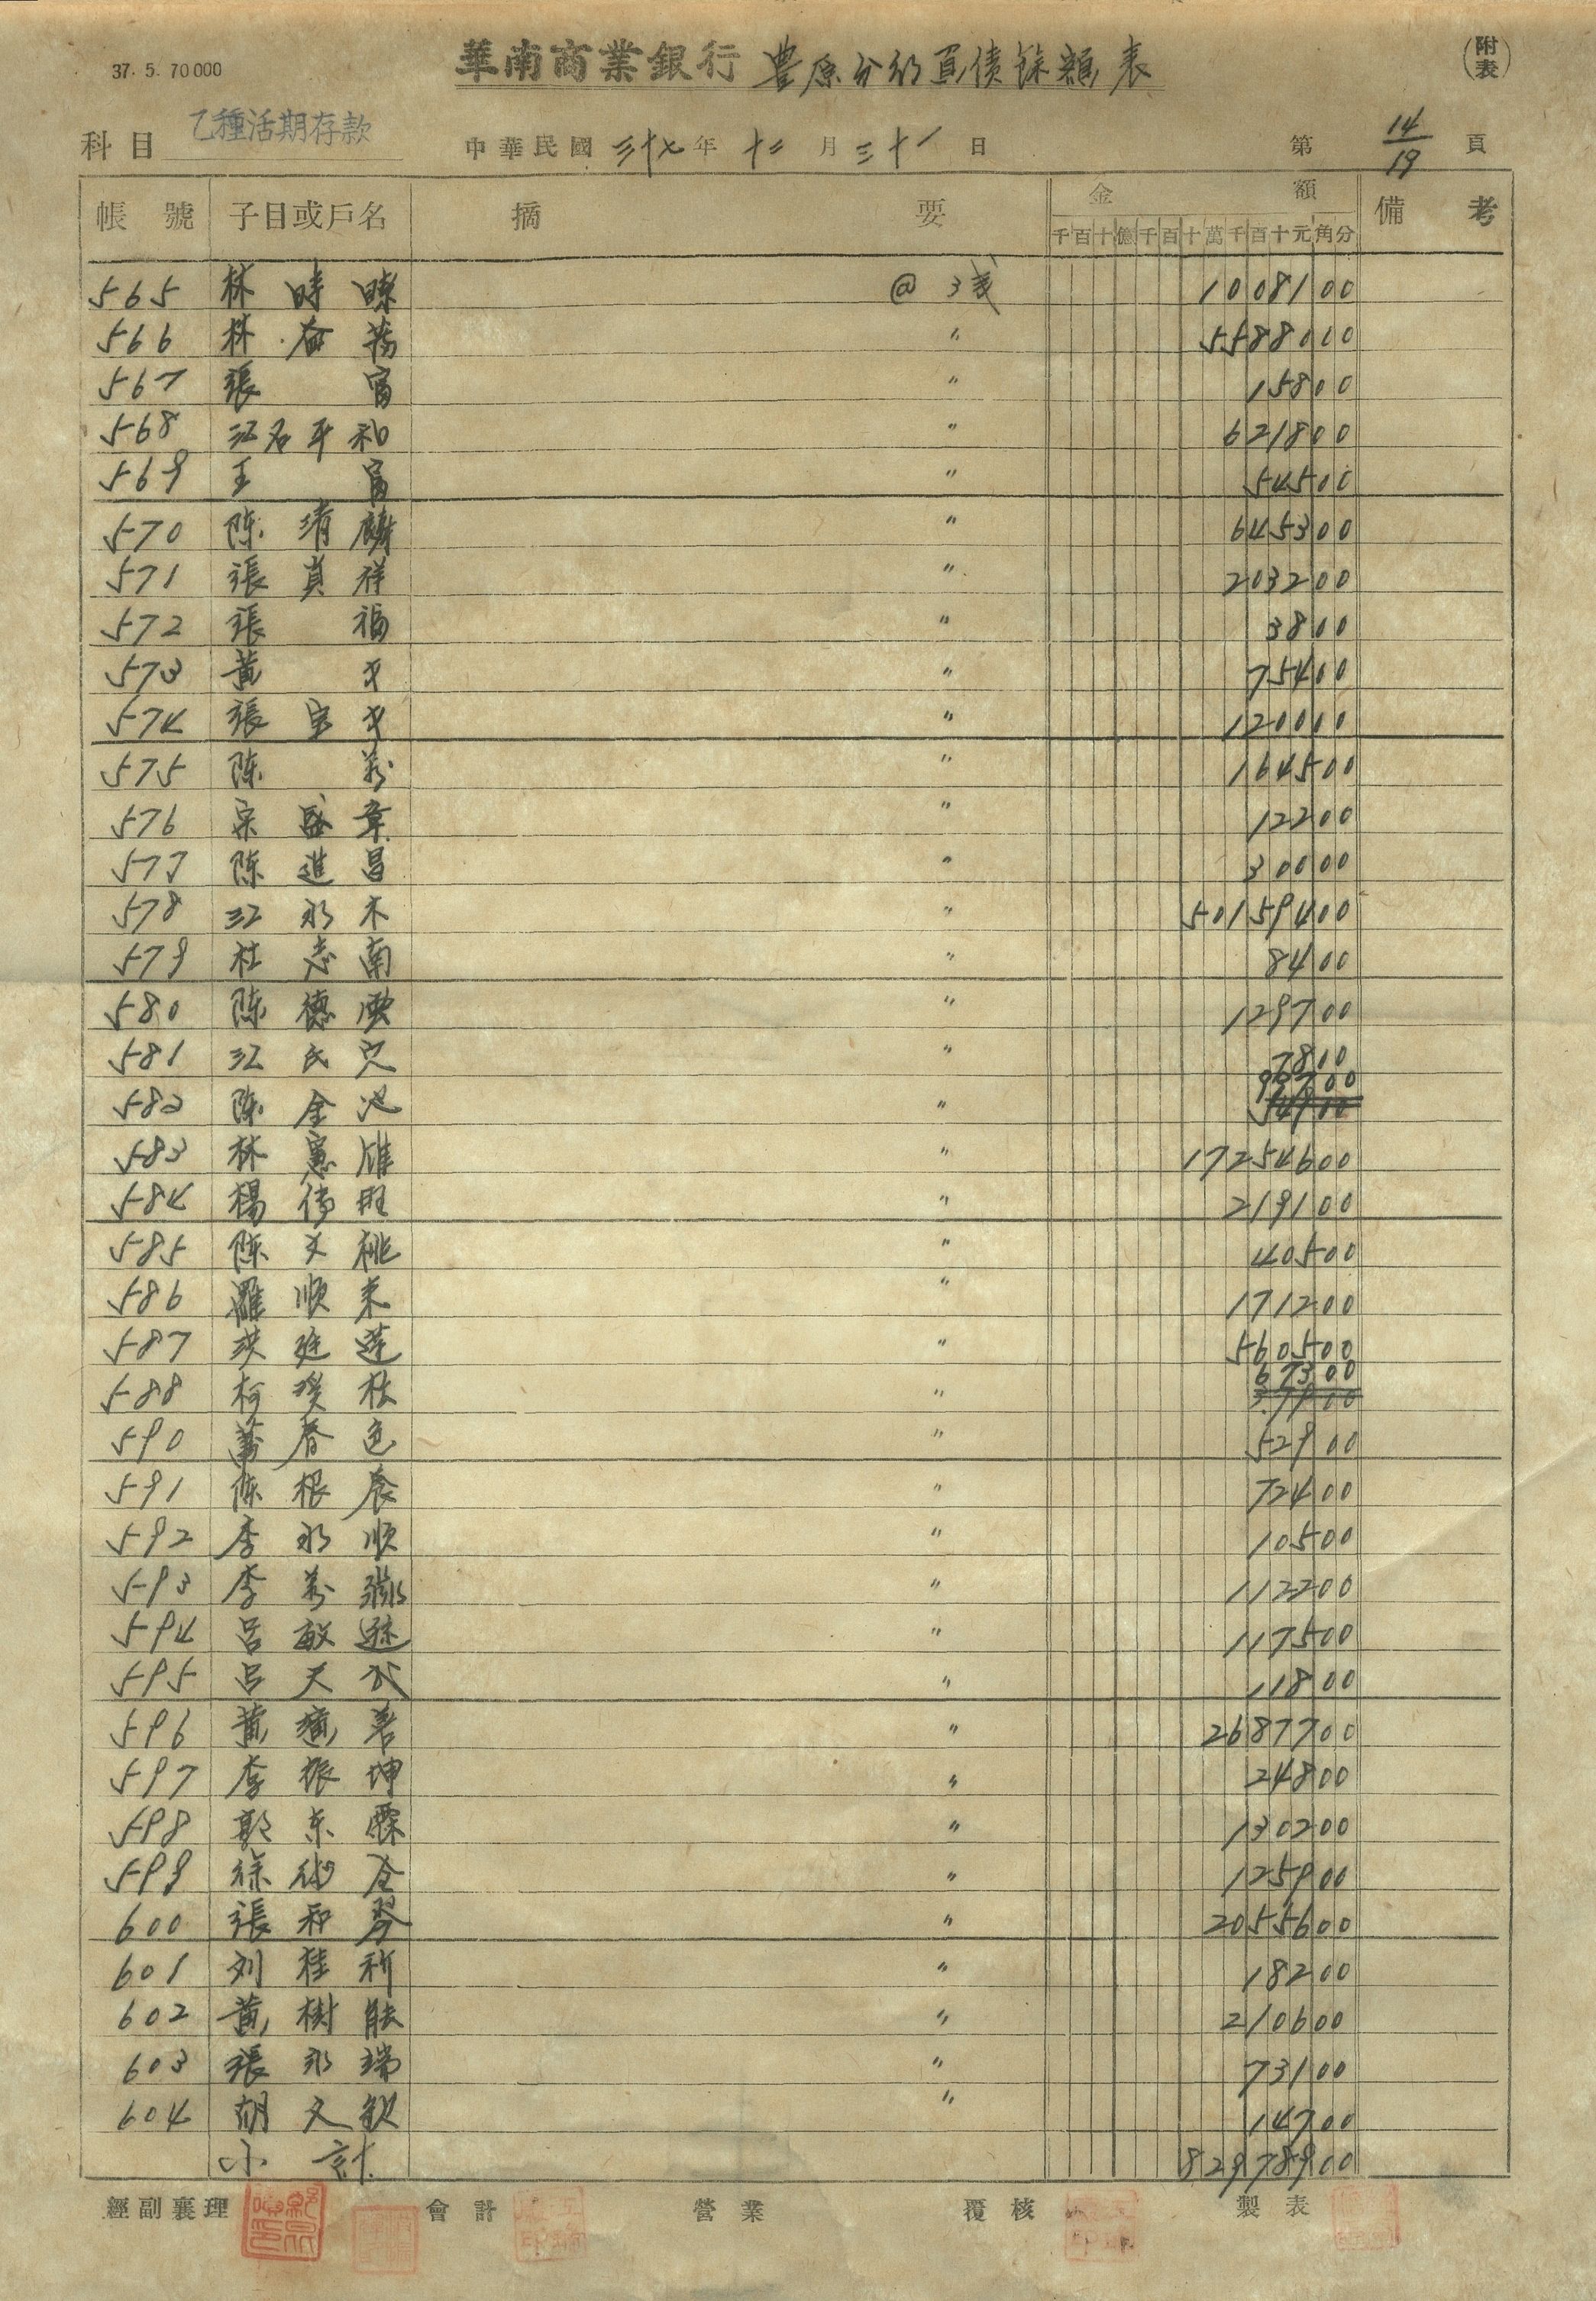 37. 5. 70000
華南商業銀行 豊原分行負債餘額表
(附表)
科目 乙種活期存款 中華民國 三十七 年 十二 月 三十一 日 第 14/19 頁
帳號 子目或戶名 摘要 金額 備考
千百十億千百十萬千百十元角分
565 林時 @ 3 10081 00
566 林 〃 55880 00
567 張富 〃 158 00
568 江石平和 〃 6218 00
569 王富 〃 545 00
570 陳清麟 〃 6453 00
571 張貞祥 〃 2032 00
572 張福 〃 38 00
573 黄才 〃 754 00
574 張宝才 〃 1200 00
575 陳芳 〃 1645 00
576 宋盛章 〃 122 00
577 陳進昌 〃 300 00
578 江永木 〃 501594 00
579 杜志南 〃 84 00
580 陳德 〃 1297 00
581 江氏 〃 78 00
582 陳金池 〃 997 00
583 林憲雄 〃 172546 00
584 楊傳旺 〃 2191 00
585 陳文桃 〃 405 00
586 羅順来 〃 1712 00
587 洪廷蓮 〃 5605 00
588 柯枝 〃 673 00
590 春色 〃 529 00
591 陳根辰 〃 724 00
592 李永順 〃 105 00
593 李芳 〃 1122 00
594 呂敏 〃 1175 00
595 呂天 〃 118 00
596 黄善 〃 26877 00
597 李振坤 〃 248 00
598 郭東霖 〃 1302 00
599 徐全 〃 1259 00
600 張和琴 〃 20556 00
601 刘桂 〃 182 00
602 黄樹 〃 2106 00
603 張永瑞 〃 731 00
604 胡文欽 〃 147 00
小計 829789 00
經副襄理 會計 營業 覆核 製表